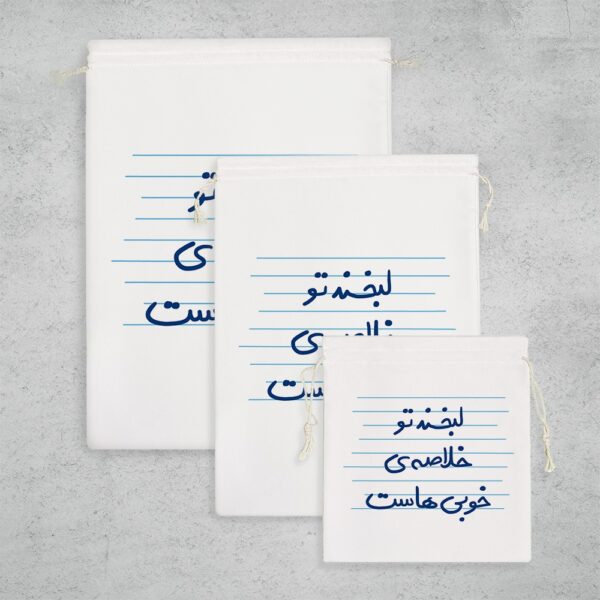 تو
ی
ست
لبخند تو
خلاصه‌ی
ست
لبخند تو
خلاصه‌ی
خوبی هاست